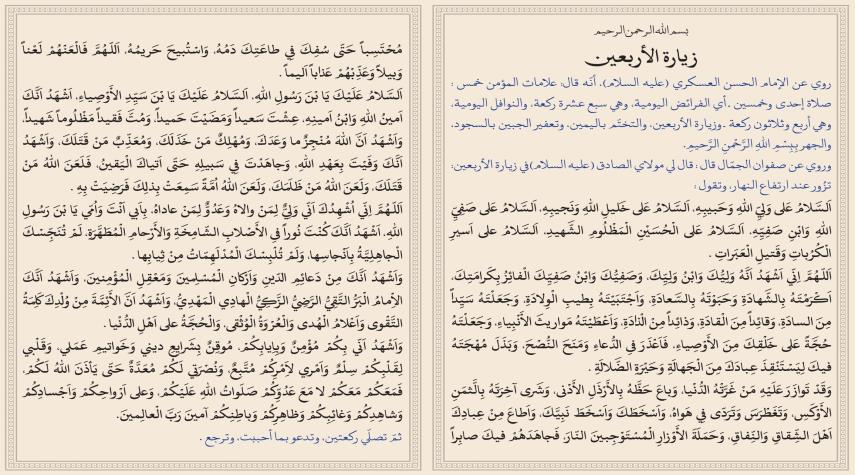 بسم الله الرحمن الرحيم
زيارة الأربعين
روي عن الإمام الحسن العسكري (عليه السلام)، أنّه قال: علامات المؤمن خمس :
صلاة إحدى وخمسين ـ أي الفرائض اليومية، وهي سبع عشرة ركعة، والنوافل اليومية،
وهي أربع وثلاثون ركعة ـ وزيارة الأربعين، والتختّم باليمين، وتعفير الجبين بالسجود،
والجهر بِبِسْمِ اللهِ الرَّحْمنِ الرَّحيمِ.
وروي عن صفوان الجمّال قال : قال لي مولاي الصادق (عليه السلام) في زيارة الأربعين:
تزُور عند ارتفاع النهار، وتقول :
اَلسَّلامُ عَلى وَلِيِّ اللهِ وَحَبيبِهِ، اَلسَّلامُ عَلى خَليلِ اللهِ وَنَجيبِهِ، اَلسَّلامُ عَلى صَفِيِّ
اللهِ وَابْنِ صَفِيِّهِ، اَلسَّلامُ عَلى الْحُسَيْنِ الْمَظْلُومِ الشَّهيدِ، اَلسَّلامُ على اَسيرِ
الْكُرُباتِ وَقَتيلِ الْعَبَراتِ .
اَللّهُمَّ اِنّي اَشْهَدُ اَنَّهُ وَلِيُّكَ وَابْنُ وَلِيِّكَ، وَصَفِيُّكَ وَابْنُ صَفِيِّكَ الْفائِزُ بِكَرامَتِكَ،
اَكْرَمْتَهُ بِالشَّهادَةِ وَحَبَوْتَهُ بِالسَّعادَةِ، وَاَجْتَبَيْتَهُ بِطيبِ الْوِلادَةِ، وَجَعَلْتَهُ سَيِّداً
مِنَ السادَةِ، وَقائِداً مِنَ الْقادَةِ، وَذائِداً مِنْ الْذادَةِ، وَاَعْطَيْتَهُ مَواريثَ الاَْنْبِياءِ، وَجَعَلْتَهُ
حُجَّةً عَلى خَلْقِكَ مِنَ الاَْوْصِياءِ، فَاَعْذَرَ فىِ الدُّعاءِ وَمَنَحَ النُّصْحَ، وَبَذَلَ مُهْجَتَهُ
فيكَ لِيَسْتَنْقِذَ عِبادَكَ مِنَ الْجَهالَةِ وَحَيْرَةِ الضَّلالَةِ .
وَقَدْ تَوازَرَ عَلَيْهِ مَنْ غَرَّتْهُ الدُّنْيا، وَباعَ حَظَّهُ بِالاَْرْذَلِ الاَْدْنى، وَشَرى آخِرَتَهُ بِالثَّمَنِ
الاَْوْكَسِ، وَتَغَطْرَسَ وَتَرَدّى فِي هَواهُ، وَاَسْخَطَكَ وَاَسْخَطَ نَبِيَّكَ، وَاَطاعَ مِنْ عِبادِكَ
اَهْلَ الشِّقاقِ وَالنِّفاقِ، وَحَمَلَةَ الاَْوْزارِ الْمُسْتَوْجِبينَ النّارَ، فَجاهَدَهُمْ فيكَ صابِراً
مُحْتَسِباً حَتّى سُفِكَ فِي طاعَتِكَ دَمُهُ، وَاسْتُبيحَ حَريمُهُ، اَللّهُمَّ فَالْعَنْهُمْ لَعْناً
وَبيلاً وَعَذِّبْهُمْ عَذاباً اَليماً .
اَلسَّلامُ عَلَيْكَ يَا بْنَ رَسُولِ اللهِ، اَلسَّلامُ عَلَيْكَ يَا بْنَ سَيِّدِ الاَْوْصِياءِ، اَشْهَدُ اَنَّكَ
اَمينُ اللهِ وَابْنُ اَمينِهِ، عِشْتَ سَعيداً وَمَضَيْتَ حَميداً، وَمُتَّ فَقيداً مَظْلُوماً شَهيداً،
وَاَشْهَدُ اَنَّ اللهَ مُنْجِزٌ ما وَعَدَكَ، وَمُهْلِكٌ مَنْ خَذَلَكَ، وَمُعَذِّبٌ مَنْ قَتَلَكَ، وَاَشْهَدُ
اَنَّكَ وَفَيْتَ بِعَهْدِ اللهِ، وَجاهَدْتَ فِي سَبيلِهِ حَتّى اَتياكَ الْيَقينُ، فَلَعَنَ اللهُ مَنْ
قَتَلَكَ، وَلَعَنَ اللهُ مَنْ ظَلَمَكَ، وَلَعَنَ اللهُ اُمَّةً سَمِعَتْ بِذلِكَ فَرَضِيَتْ بِهِ .
اَللّهُمَّ اِنّي اُشْهِدُكَ اَنّي وَلِيٌّ لِمَنْ والاهُ وَعَدُوٌّ لِمَنْ عاداهُ، بِاَبي اَنْتَ وَاُمّي يَا بْنَ رَسُولِ
اللهِ، اَشْهَدُ اَنَّكَ كُنْتَ نُوراً فىِ الاَْصْلابِ الشّامِخَةِ وَالاَْرْحامِ الْمُطَهَّرَةِ، لَمْ تُنَجِّسْكَ
الْجاهِلِيَّةُ بِاَنْجاسِها، وَلَمْ تُلْبِسْكَ الْمُدْلَهِمّاتُ مِنْ ثِيابِها .
وَاَشْهَدُ اَنَّكَ مِنْ دَعائِمِ الدّينِ وَاَرْكانِ الْمُسْلِمينَ وَمَعْقِلِ الْمُؤْمِنينَ، وَاَشْهَدُ اَنَّكَ
الاِْمامُ الْبَرُّ التَّقِيُّ الرَّضِيُّ الزَّكِيُّ الْهادِي الْمَهْدِيُّ، وَاَشْهَدُ اَنَّ الاَْئِمَّةَ مِنْ وُلْدِكَ كَلِمَةُ
التَّقْوى وَاَعْلامُ الْهُدى وَالْعُرْوَةُ الْوُثْقى، وَالْحُجَّةُ على اَهْلِ الدُّنْيا .
وَاَشْهَدُ اَنّي بِكُمْ مُؤْمِنٌ وَبِاِيابِكُمْ، مُوقِنٌ بِشَرايِعِ ديني وَخَواتيمِ عَمَلي، وَقَلْبي
لِقَلْبِكُمْ سِلْمٌ وَاَمْري لاَِمْرِكُمْ مُتَّبِعٌ، وَنُصْرَتي لَكُمْ مُعَدَّةٌ حَتّى يَأذَنَ اللهُ لَكُمْ،
فَمَعَكُمْ مَعَكُمْ لا مَعَ عَدُوِّكُمْ صَلَواتُ اللهِ عَلَيْكُمْ، وَعلى اَرْواحِكُمْ وَاَجْسادِكُمْ
وَشاهِدِكُمْ وَغائِبِكُمْ وَظاهِرِكُمْ وَباطِنِكُمْ آمينَ رَبَّ الْعالِمينَ.
ثمّ تصلّي ركعتين، وتدعو بما أحببت، وترجع .